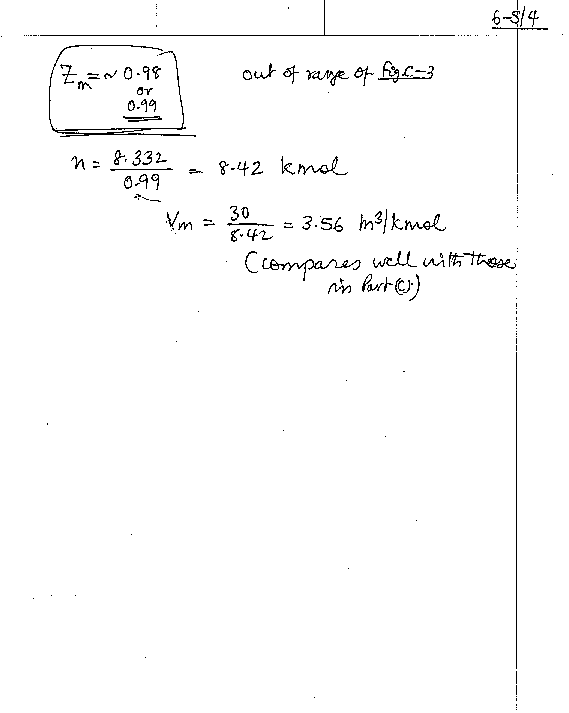 6-5/4
Zm = ~ 0.98 out of range of Fig C-3
or
0.99
n = 8.332 / 0.99 = 8.42 kmol
Vm = 30 / 8.42 = 3.56 m³/kmol
(compares well with those
in Part (c).)